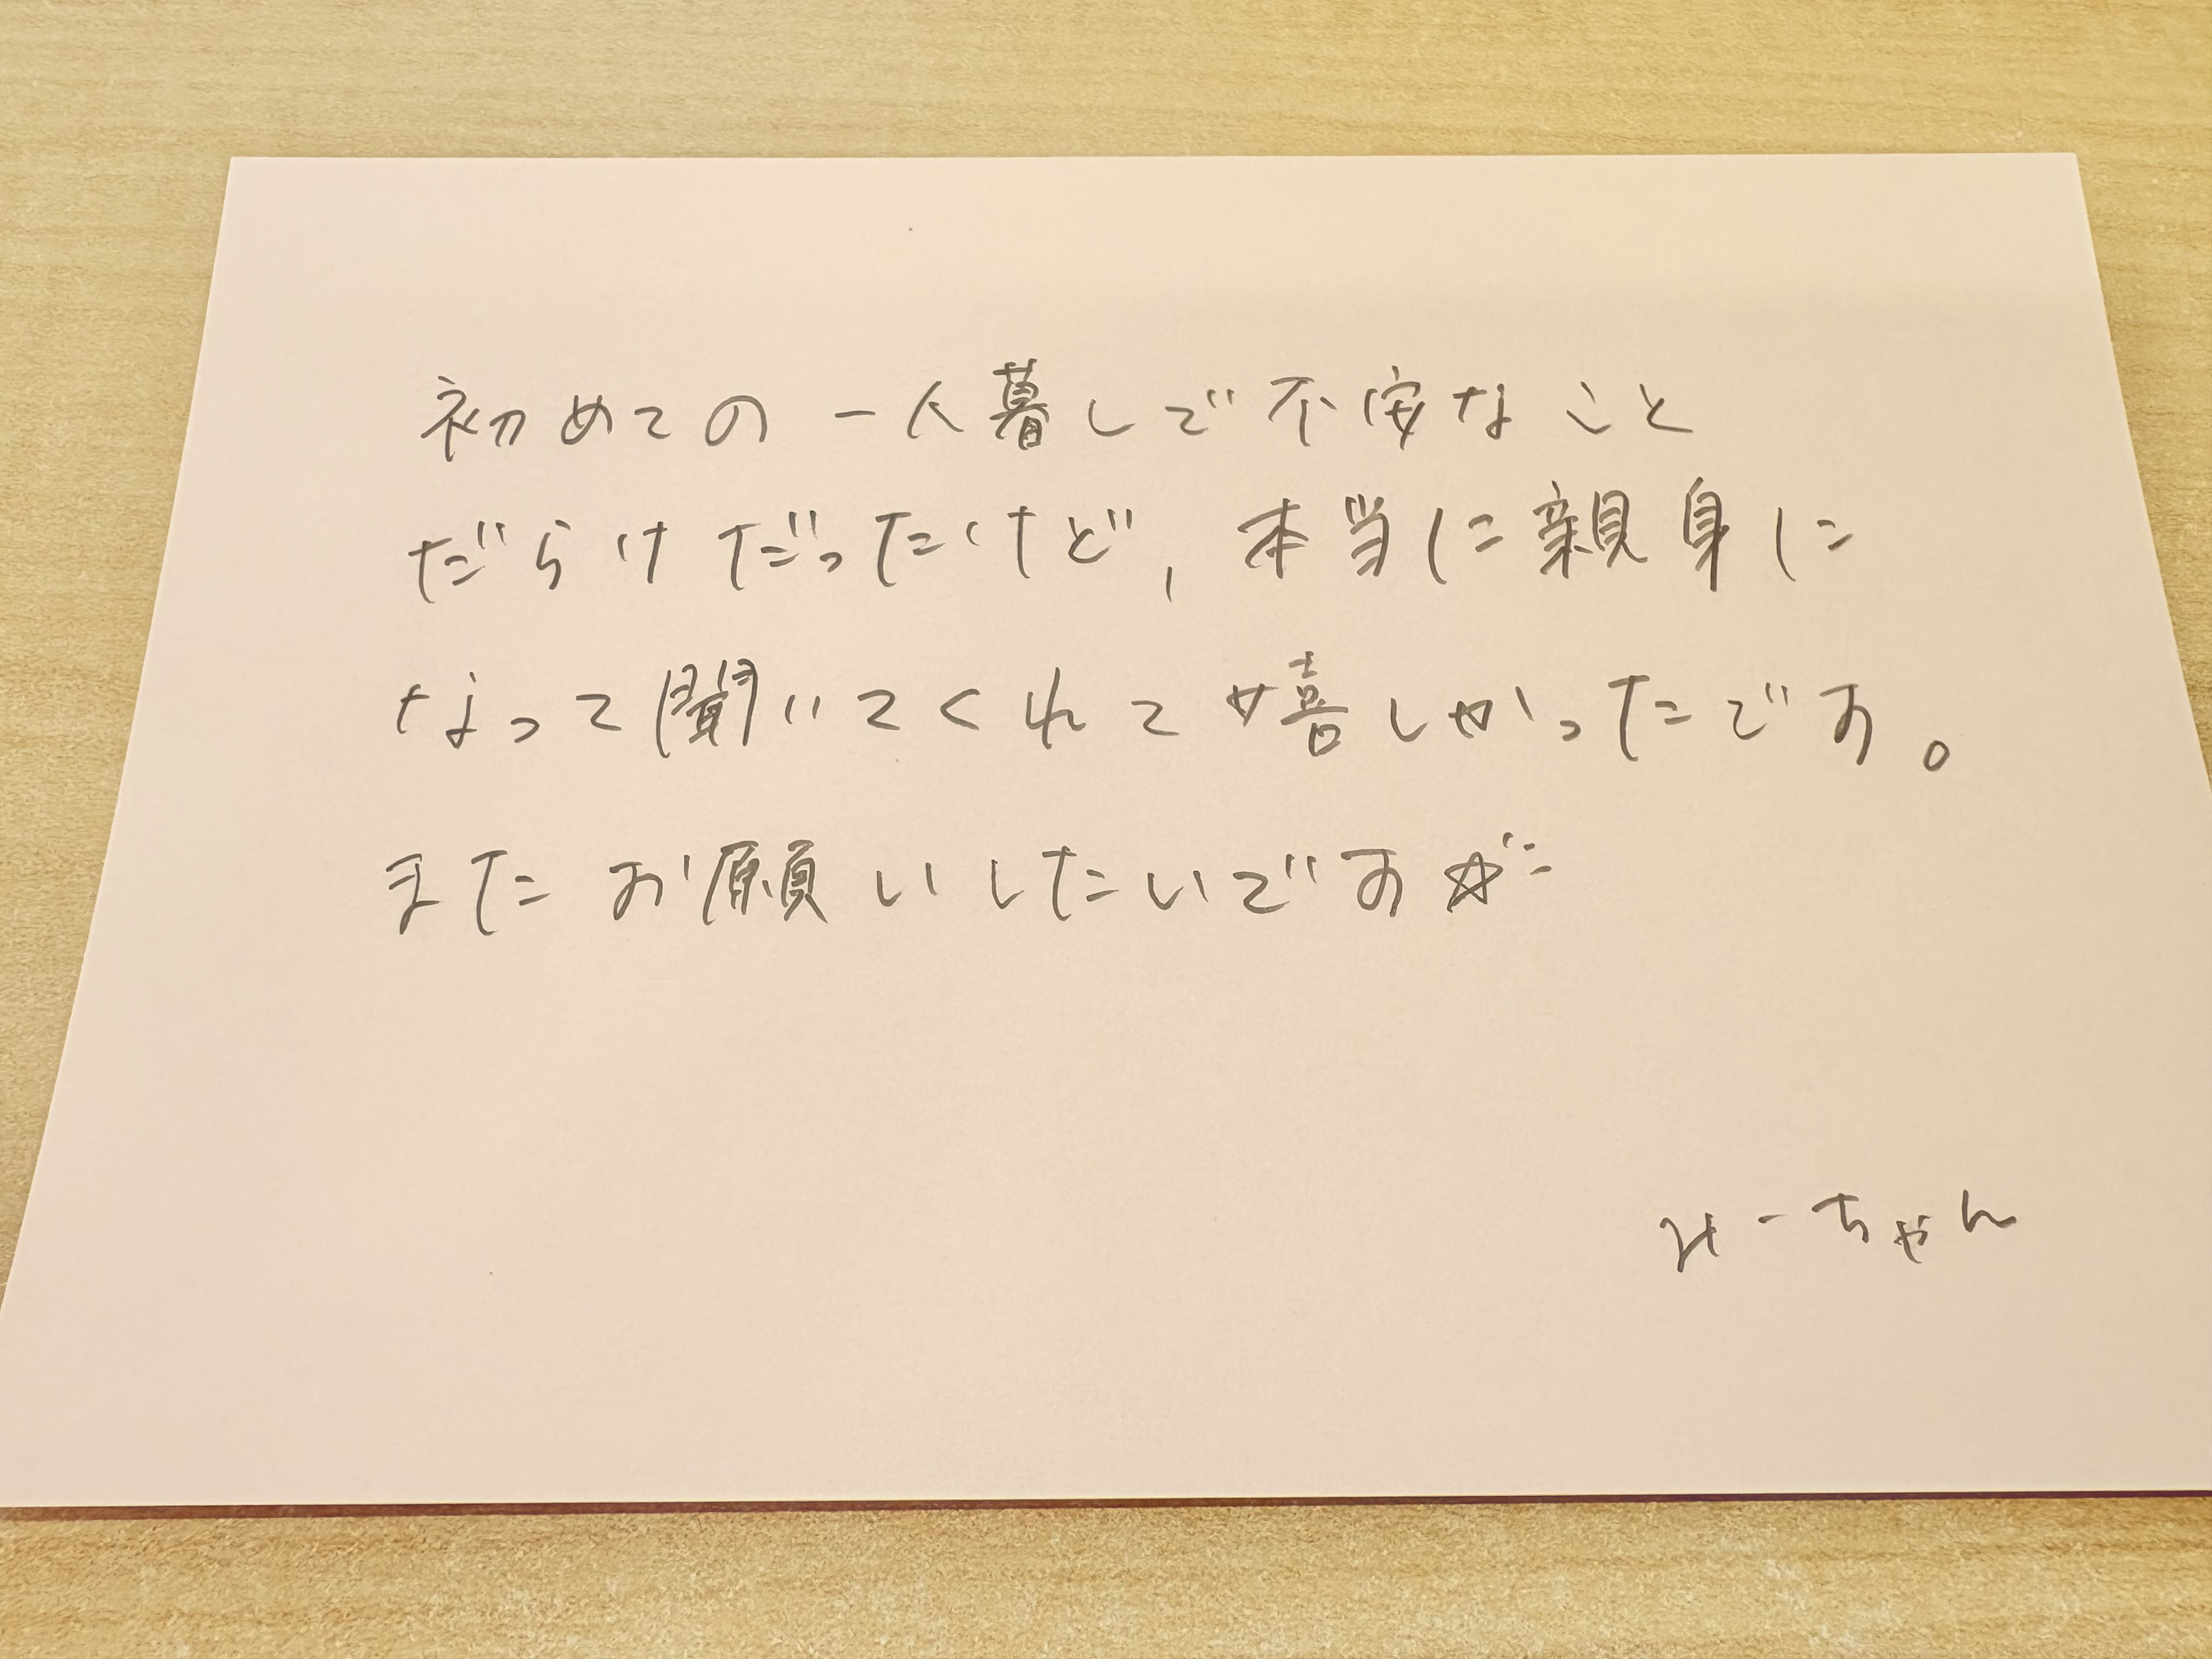 初めての一人暮しで不安なこと
だらけだったけど、本当に親身に
なって聞いてくれて嬉しかったです。
またお願いしたいです☆
みーちゃん